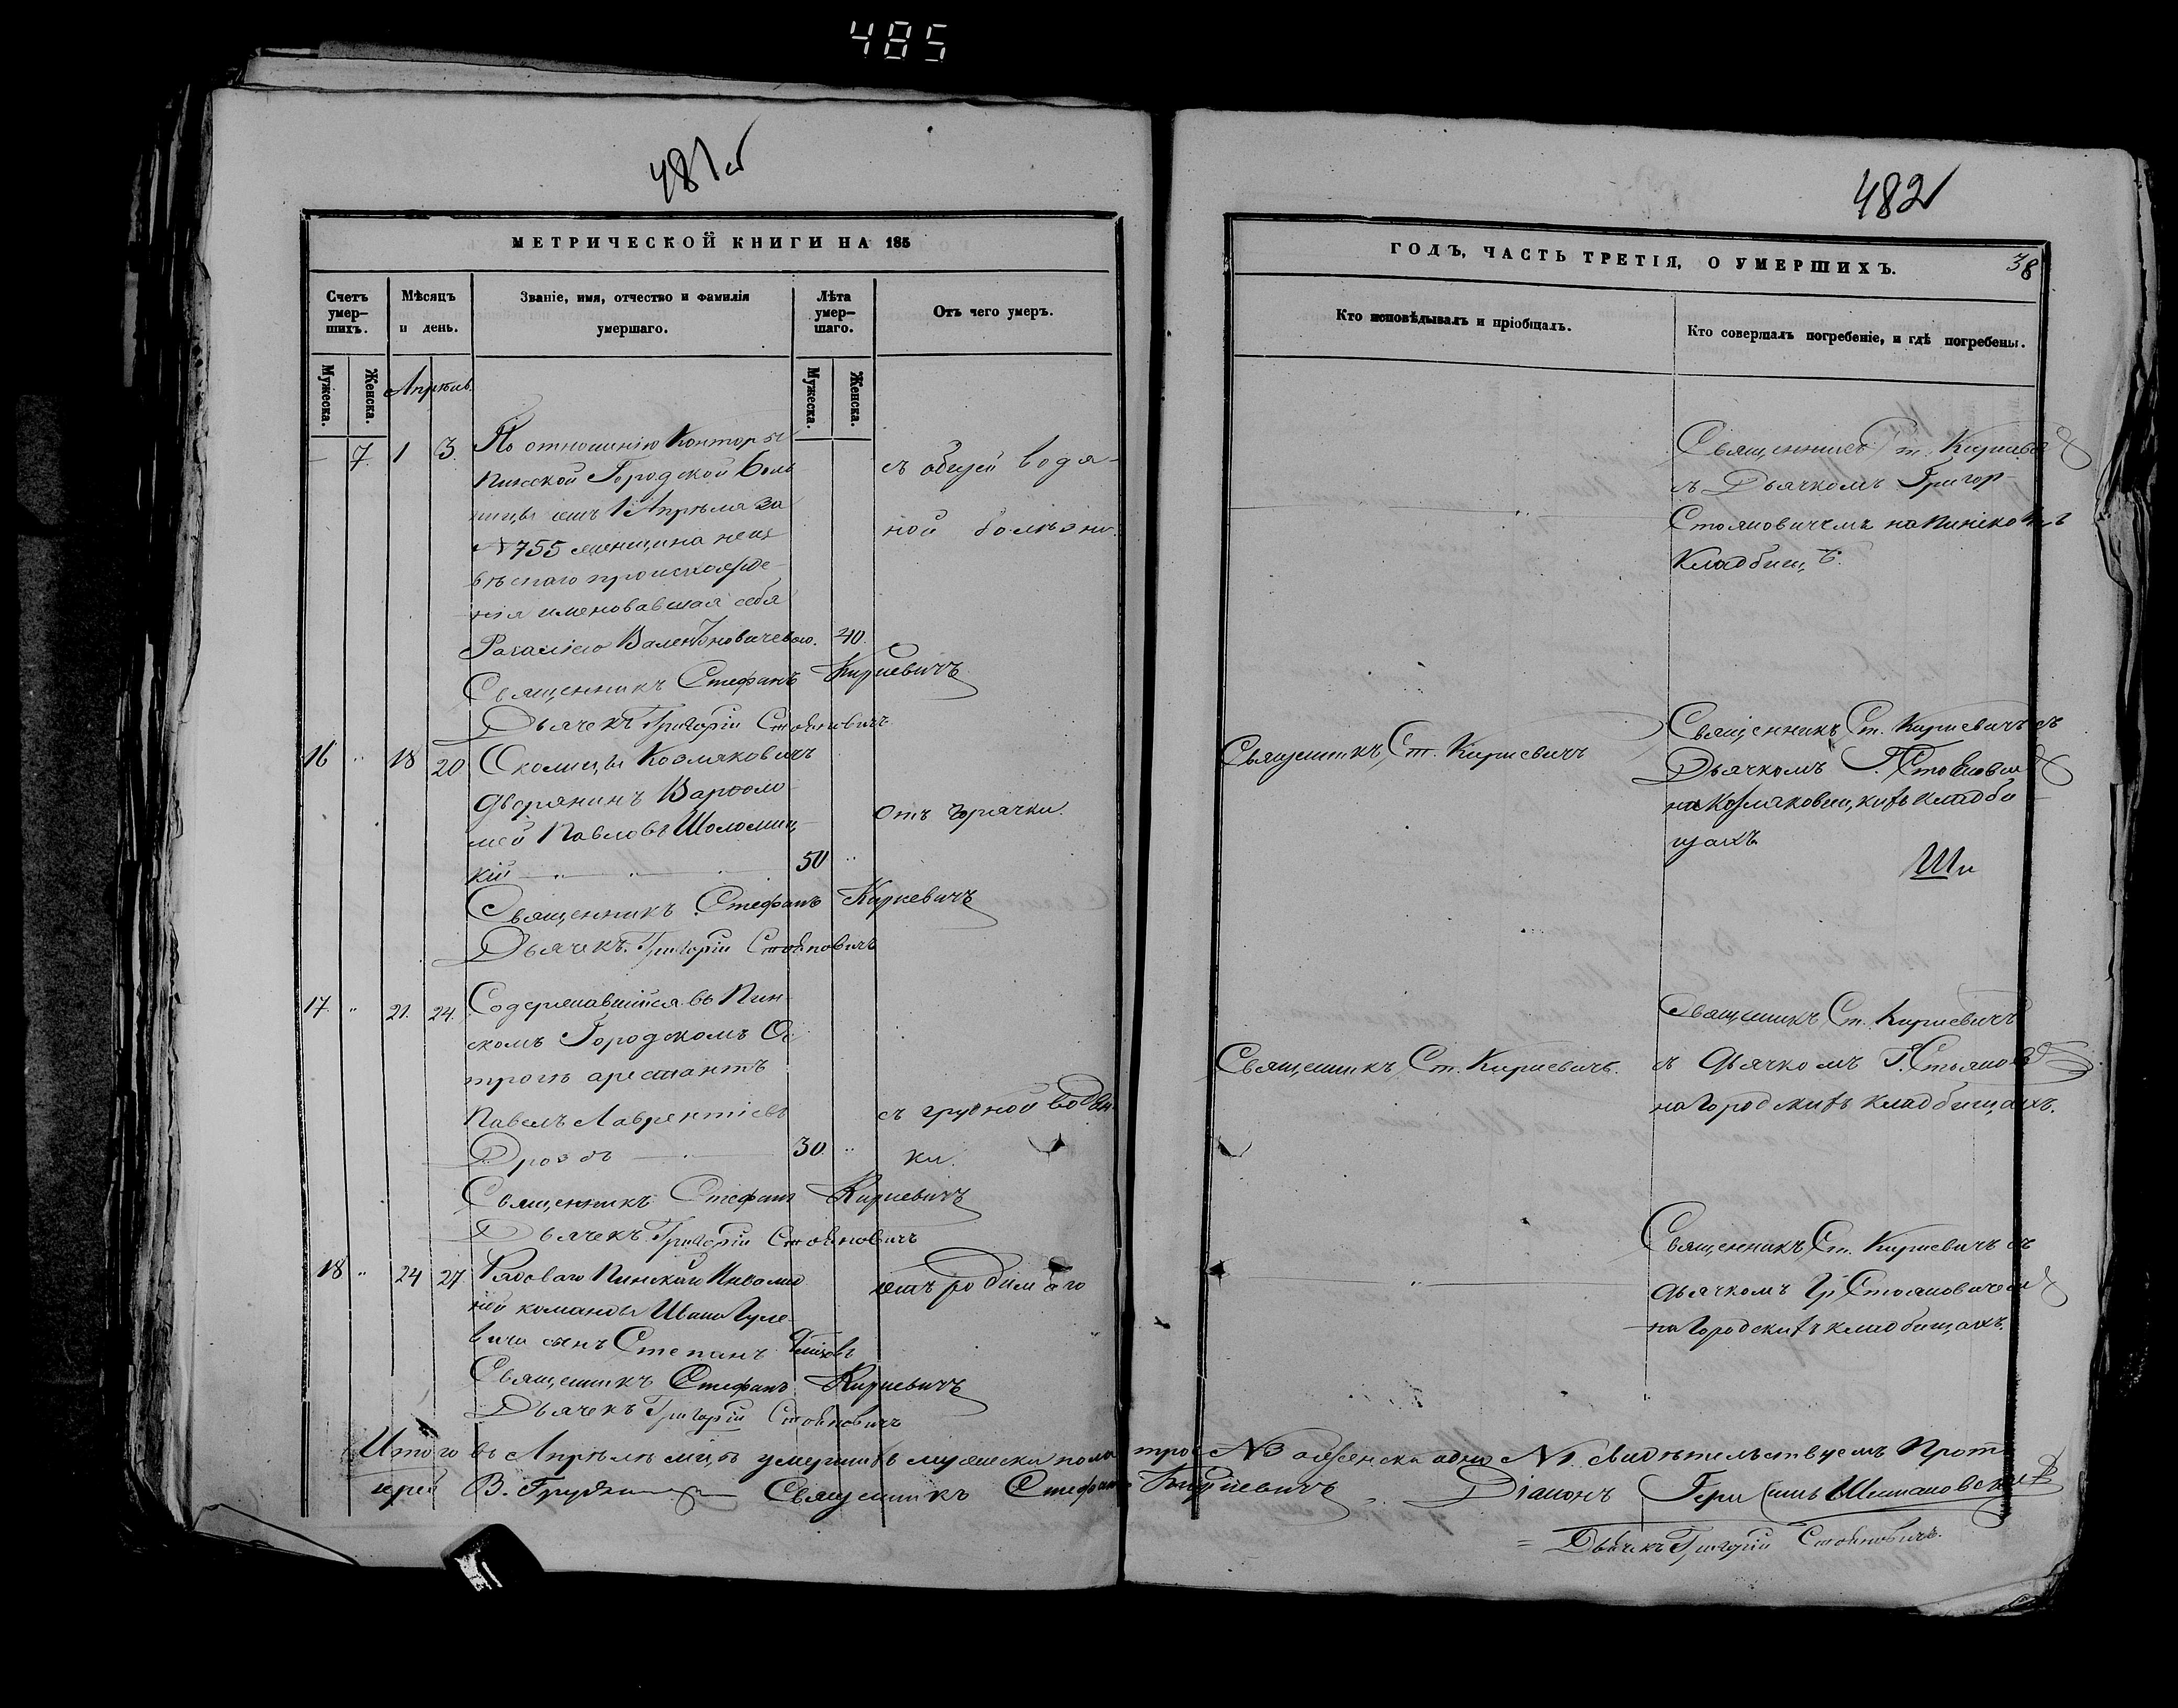 485
481
482
МЕТРИЧЕСКОЙ КНИГИ НА 185
Счетъ умерших.
Мѣсяцъ и день.
Званіе, имя, отчество и фамилія умершаго.
Лѣта умершаго.
Отъ чего умеръ.
Мужеска.
Женска.
Мужеска.
Женска.
Апрѣль
7. 1 3. По отношенію Конторы
Пинской Городской Боль
ницы отъ 1 Апрѣля за
№ 755 женщина неиз
вѣстнаго происхожде-
нія именовавшая себя
40.
съ общей водя-
ной болѣзни.
Священникъ Стефанъ Киркевичъ
Дьячекъ Григорій Стояновичъ
16 " 18 20 Околицы Козляковичъ
дворянинъ Варѳоло-
мей Павловъ Шоломиц-
кій 50 "
отъ горячки.
Священникъ Стефанъ Киркевичъ
Дьячекъ Григорій Стояновичъ
17. " 21. 24. Содержавшійся въ Пин-
скомъ Городскомъ Ос
трогѣ арестантъ
Павелъ Лаврентіевъ
Дроздъ 30. "
съ грудной водян
ки.
Священникъ Стефанъ Киркевичъ
Дьячекъ Григорій Стояновичъ
18 " 24 27 Рядоваго Пинской Инвалид
ной команды
сынъ Степанъ
отъ родимаго
Священникъ Стефанъ Киркевичъ
Дьячекъ Григорій Стояновичъ
Итого въ Апрѣлѣ м-цѣ умершихъ мужеска пола трое №3 а женска одна №1. свидѣтельствуемъ Прото
іерей В. Священникъ Стефанъ Киркевичъ Діаконъ
Дьячекъ Григорій Стояновичъ.
ГОДЪ, ЧАСТЬ ТРЕТІЯ, О УМЕРШИХЪ.
38
Кто исповѣдывалъ и пріобщалъ.
Кто совершалъ погребеніе, и гдѣ погребены.
Священникъ Ст. Киркевичъ
съ Дьячкомъ Григор-
Стояновичемъ на Пинскомъ
Кладбищѣ.
Священникъ Ст. Киркевичъ
Священникъ Ст. Киркевичъ съ
Дьячкомъ Г. Стоянови
на Козляковицкихъ кладби
щахъ
Священникъ Ст. Киркевичъ.
Священникъ Ст. Киркевичъ
съ дьячкомъ Г. Стоянов
на Городскихъ кладбищахъ.
Священникъ Ст. Киркевичъ съ
дьячкомъ Гр. Стояновичем
на Городскихъ кладбищахъ.